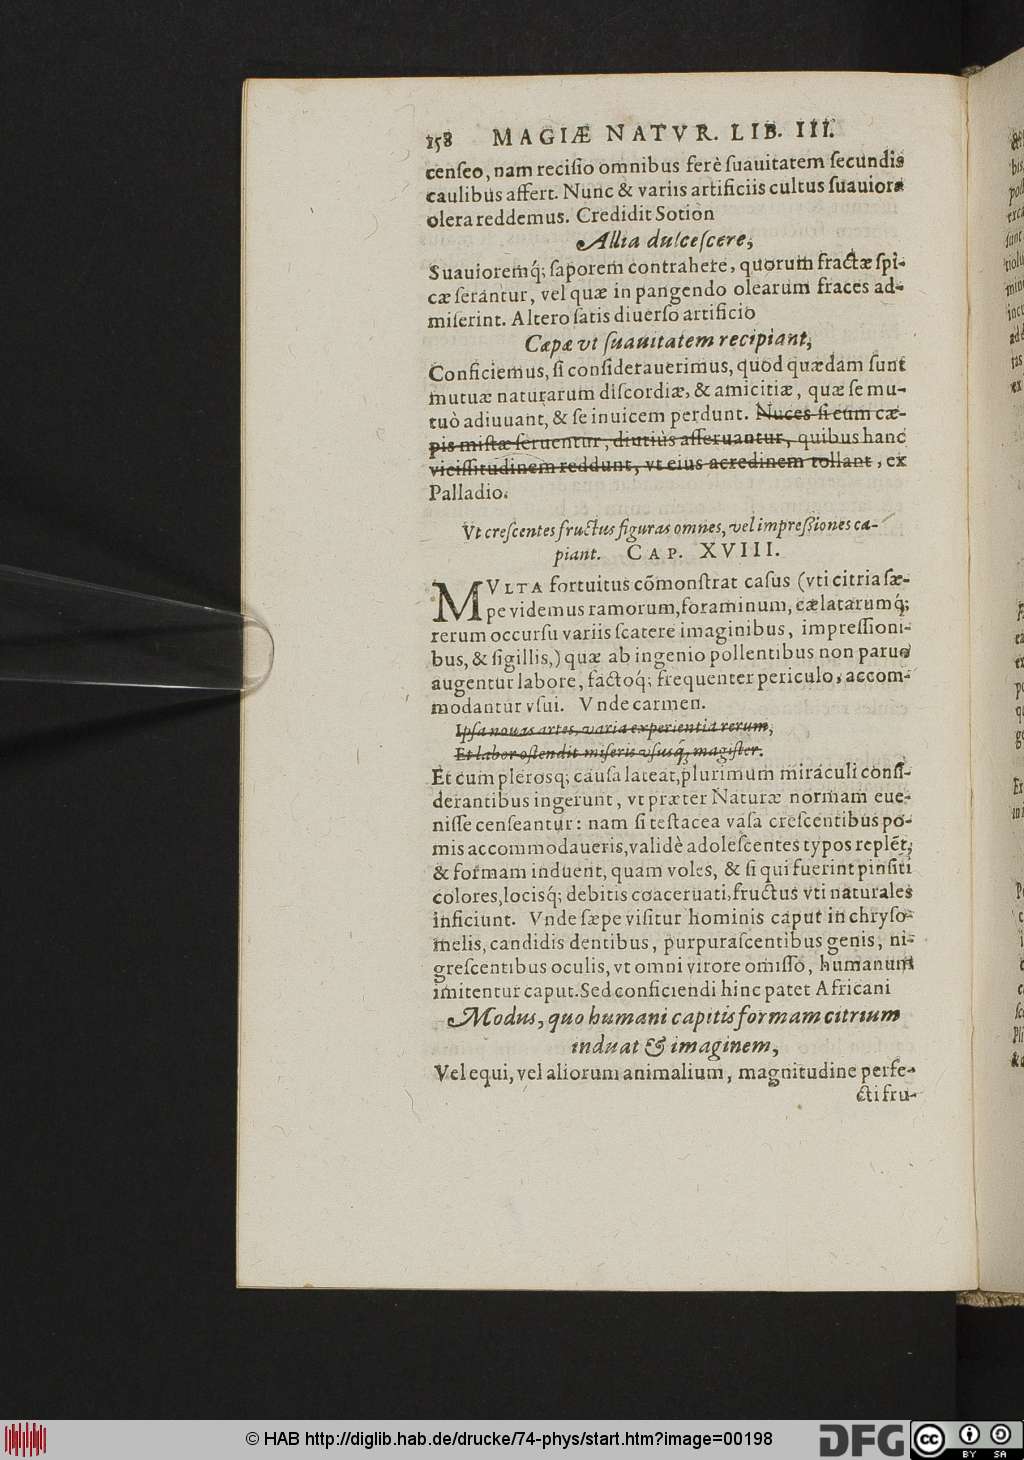 158 MAGIÆ NATVR. LIB. III.
censeo, nam recisio omnibus ferè suauitatem secundis
caulibus affert. Nunc & variis artificiis cultus suauiora
olera reddemus. Credidit Sotion
Allia dulcescere,
Suauioremq́; saporem contrahere, quorum fractæ spi-
cæ serantur, vel quæ in pangendo olearum fraces ad-
miserint. Altero satis diuerso artificio
Cæpæ vt suauitatem recipiant,
Conficiemus, si considerauerimus, quòd quædam sunt
mutuæ naturarum discordiæ, & amicitiæ, quæ se mu-
tuò adiuuant, & se inuicem perdunt. Nuces si cum cæ-
pis mistæ seruentur, diutiùs asseruantur, quibus hanc
vicissitudinem reddunt, vt eius acredinem tollant, ex
Palladio.
Vt crescentes fructus figuras omnes, vel impreßiones ca-
piant. CAP. XVIII.
MVLTA fortuitus cõmonstrat casus (vti citria sæ-
pe videmus ramorum, foraminum, cælatarumq́;
rerum occursu variis scatere imaginibus, impressioni-
bus, & sigillis,) quæ ab ingenio pollentibus non paruo
augentur labore, factoq́; frequenter periculo, accom-
modantur vsui. Vnde carmen.
Ipsa nouas artes, varia experientia rerum,
Et labor ostendit miseris vsusq́, magister.
Et cum plerosq; causa lateat, plurimùm miraculi consi-
derantibus ingerunt, vt præter Naturæ normam eue-
nisse censeantur: nam si testacea vasa crescentibus po-
mis accommodaueris, validè adolescentes typos replẽt,
& formam induent, quam voles, & si qui fuerint pinsiti
colores, locisq́; debitis coaceruati, fructus vti naturales
inficiunt. Vnde sæpe visitur hominis caput in chryso-
melis, candidis dentibus, purpurascentibus genis, ni-
grescentibus oculis, vt omni virore omisso, humanum
imitentur caput. Sed conficiendi hinc patet Africani
Modus, quo humani capitis formam citrium
induat & imaginem,
Vel equi, vel aliorum animalium, magnitudine perfe-
cti fru-
© HAB http://diglib.hab.de/drucke/74-phys/start.htm?image=00198
DFG
cc
BY SA